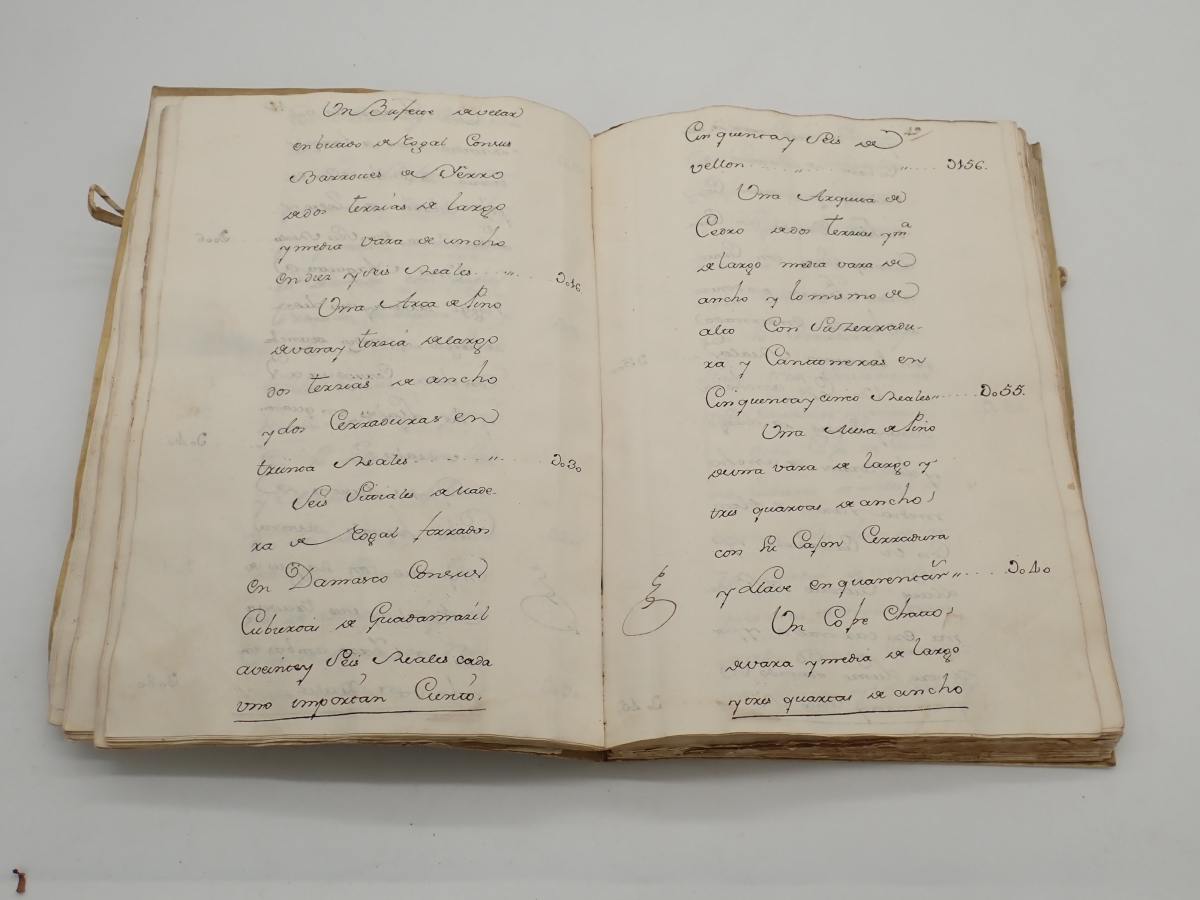 Un Bufete de velar
enbutido de Nogal Con sus
Barrotes de Yerro
de dos terzias de largo
y media vara de ancho
en diez y seis Reales .... „ .... D.o16.
Una Arca de Pino
de vara y terzia de largo
dos terzias de ancho
y dos Cerraduras en
treinta Reales .......... „ .... D.o30
Seis Sitiales de Made-
ra de Nogal forrados
en Damasco Con sus
Cubiertas de Guadamazil
a veinte y Seis Reales cada
uno importan Ciento,
Cinquenta y Seis de
vellon ...... „ ............ „ .... D156.
Una Arquita de
Cedro de dos terzias y mª
de largo media vara de
ancho y lo mismo de
alto Con Su Zerradu-
ra y Cantoneras en
Cinquenta y cinco Reales „ ..... D.o55.
Una Mesa de Pino
de una vara de largo y
tres quartas de ancho,
con Su Cajon Cerradura
y Llave en quarenta rr „ ..... D.o40
Un Cofre Chato,
de vara y media de largo
y tres quartas de ancho